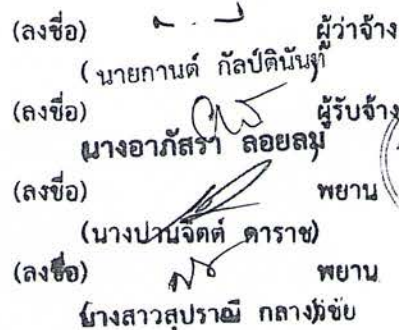 (ลงชื่อ) ผู้ว่าจ้าง
(นายกานต์ กัลป์ตินันท์)
(ลงชื่อ) ผู้รับจ้าง
นางอาภัสรา ลอยลม
(ลงชื่อ) พยาน
(นางปานจิตต์ ดาราช)
(ลงชื่อ) พยาน
นางสาวสุปราณี